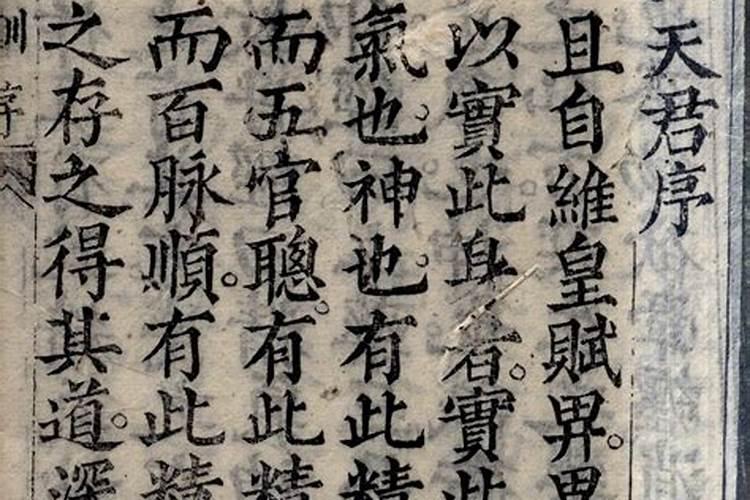 天君序
且自維皇賦畀。
以實此身者。實此
氣也。神也。有此精
而五官聰。有此精
而百脉順。有此精
之存之得其道。深
序